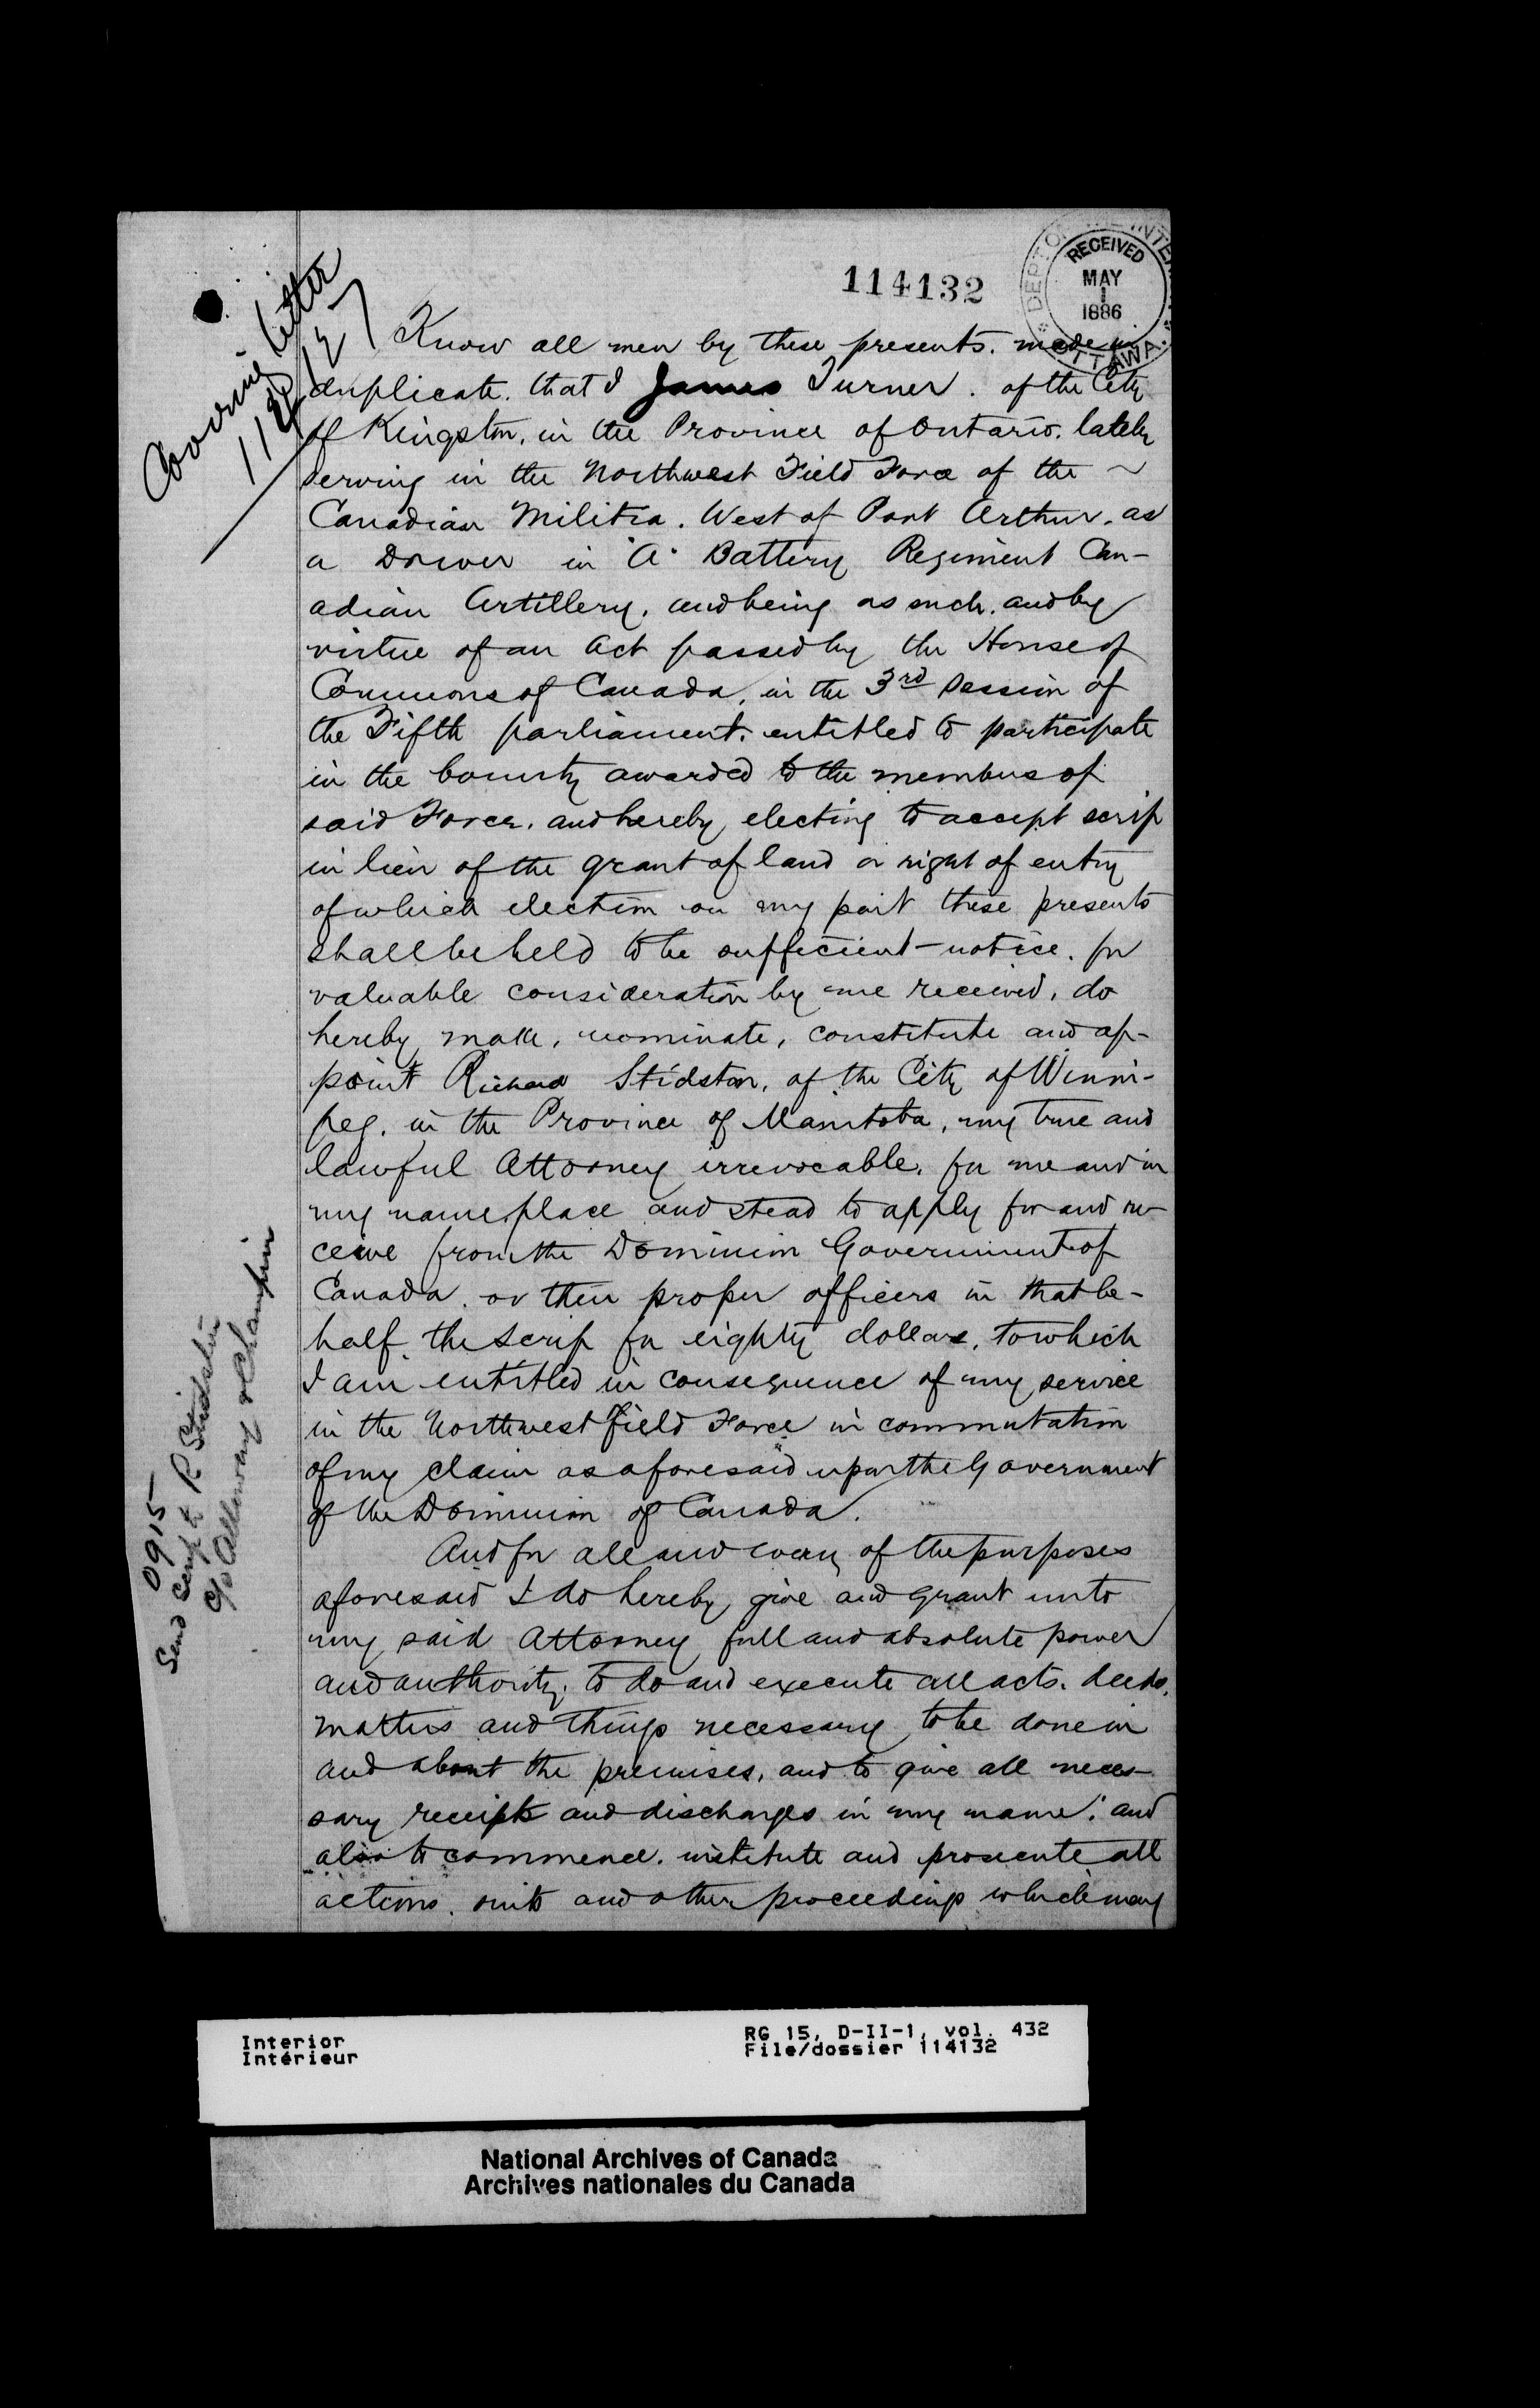 114132
DEPT OF THE INTERIOR
RECEIVED
MAY
1
1886
OTTAWA
Covering letter
Know all men by these presents. made in
duplicate. that I James Turner. of the City
of Kingston, in the Province of Ontario. lately
serving in the Northwest Field Force of the ~
Canadian Militia. West of Port Arthur. as
a Driver in "A" Battery Regiment Can-
adian Artillery. and being as such. and by
virtue of an Act passed by the House of
Commons of Canada, in the 3rd Session of
the Fifth parliament. entitled to participate
in the bounty awarded to the members of
said Force. and hereby electing to accept scrip
in lieu of the grant of land or right of entry
of which election on my part these presents
shall be held to be sufficient - notice. for
valuable consideration by me received, do
hereby make, nominate, constitute and ap-
point Richard Stidston, of the City of Winni-
peg. in the Province of Manitoba, my true and
lawful Attorney irrevocable. for me and in
my name, place and stead to apply for and re-
ceive from the Dominion Government of
Canada. or their proper officers in that be-
half. the scrip for eighty dollars, to which
I am entitled in consequence of my service
in the Northwest Field Force in commutation
of my claim as aforesaid upon the Government
of the Dominion of Canada.
And for all and every of the purposes
aforesaid I do hereby give and grant unto
my said Attorney full and absolute power
and authority. to do and execute all acts. deeds.
matters and things necessary to be done in
and about the premises, and to give all neces-
sary receipts and discharges in my name. and
also to commence. institute and prosecute all
actions. suits and other proceedings which may
0915
Send scrip to R Stidston
c/o Alloway & Champion
Interior
Intérieur
RG 15, D-II-1, vol. 432
File/dossier 114132
National Archives of Canada
Archives nationales du Canada